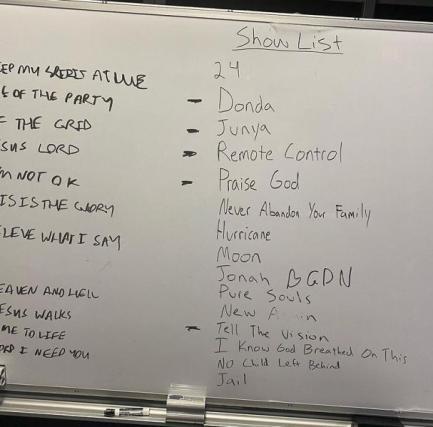 Show List
EP MY SPIRIT ALIVE
E OF THE PARTY
F THE GRID
SUS LORD
M NOT OK
IS IS THE GLORY
LEVE WHAT I SAY
EAVEN AND HELL
ESUS WALKS
ME TO LIFE
ORD I NEED YOU
24
- Donda
- Junya
- Remote Control
- Praise God
Never Abandon Your Family
Hurricane
Moon
Jonah BGDN
Pure Souls
New
- Tell The Vision
I Know God Breathed On This
No Child Left Behind
Jail